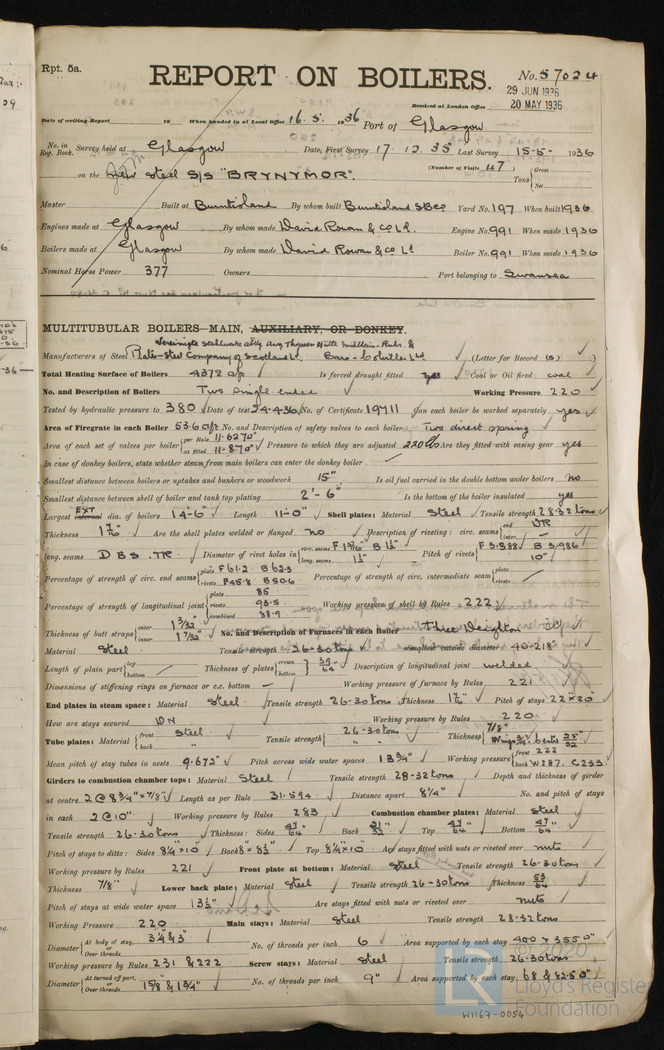 Rpt. 5a.
REPORT ON BOILERS.
No. 57024
29 JUN 1936
Received at London Office 20 MAY 1936
Date of writing Report 19 When handed in at Local Office 16.5. 1936 Port of Glasgow
No. in Reg. Book. Survey held at Glasgow Date, First Survey 17.12.35 Last Survey 15-5- 1936
on the New Steel S/S "BRYNYMOR". (Number of Visits 47) Tons {Gross Net
Master Built at Burntisland By whom built Burntisland S B Co Yard No. 197 When built 1936
Engines made at Glasgow By whom made David Rowan & Co Ld. Engine No. 991 When made 1936
Boilers made at Glasgow By whom made David Rowan & Co Ld Boiler No. 991 When made 1936
Nominal Horse Power 377 Owners Port belonging to Swansea
MULTITUBULAR BOILERS—MAIN, AUXILIARY, OR DONKEY.
Vereinigte Stahlwerke Aug Thyssen Hütte Mülheim-Ruhr. &
Manufacturers of Steel Plate - Steel Company of Scotland Ld. Bars - Colvilles Ld (Letter for Record (S) )
Total Heating Surface of Boilers 4372 Is forced draught fitted yes Coal or Oil fired coal
No. and Description of Boilers Two single ended Working Pressure 220
Tested by hydraulic pressure to 380 Date of test 24-4-36 No. of Certificate 19711 Can each boiler be worked separately yes
Area of Firegrate in each Boiler 53.6 No. and Description of safety valves to each boiler Two direct spring
Area of each set of valves per boiler {per Rule 11.6270" as fitted 11.870" Pressure to which they are adjusted 220 lbs Are they fitted with easing gear yes
In case of donkey boilers, state whether steam from main boilers can enter the donkey boiler —
Smallest distance between boilers or uptakes and bunkers or woodwork 15" Is oil fuel carried in the double bottom under boilers no
Smallest distance between shell of boiler and tank top plating 2'-6" Is the bottom of the boiler insulated yes
Largest EXT internal dia. of boilers 14'-6" Length 11'-0" Shell plates: Material Steel Tensile strength 28-32 tons
Thickness Are the shell plates welded or flanged no Description of riveting: circ. seams {end DR inter. —
long. seams D B S. TR. Diameter of rivet holes in {circ. seams long. seams Pitch of rivets {F 3.888 B 3.986 10"
Percentage of strength of circ. end seams {plate F 61.2 B 62.3 rivets F 45.8 B 50.6 Percentage of strength of circ. intermediate seam {plate rivets —
Percentage of strength of longitudinal joint {plate 85 rivets 93.5 combined 88.9 Working pressure of shell by Rules 222
Thickness of butt straps {outer 1 3/32" inner 1 7/32" No. and Description of Furnaces in each Boiler Three Deighton
Material Steel Tensile strength 26-30 tons Smallest outside diameter 40.218"
Length of plain part {top bottom Thickness of plates {crown bottom} 39/64 Description of longitudinal joint welded
Dimensions of stiffening rings on furnace or c.c. bottom — Working pressure of furnace by Rules 221
End plates in steam space: Material Steel Tensile strength 26-30 tons Thickness Pitch of stays 22" x 20"
How are stays secured DN Working pressure by Rules 220
Tube plates: Material {front Steel back " Tensile strength {26-30 tons " " Thickness {7/8" 25/32
Mean pitch of stay tubes in nests 9.672" Pitch across wide water spaces 13 3/4" Working pressure {front 222 back W 287. C 233
Girders to combustion chamber tops: Material Steel Tensile strength 28-32 tons Depth and thickness of girder
at centre 2 @ 8 3/4" x 7/8" Length as per Rule 31.594 Distance apart 8 1/4" No. and pitch of stays
in each 2 @ 10" Working pressure by Rules 283 Combustion chamber plates: Material Steel
Tensile strength 26-30 tons Thickness: Sides 47/64 Back 21/32 Top 47/64 Bottom 47/64
Pitch of stays to ditto: Sides 8 1/4" x 10" Back 8" x 8 1/2" Top 8 1/4" x 10" Are stays fitted with nuts or riveted over nuts
Working pressure by Rules 221 Front plate at bottom: Material Steel Tensile strength 26-30 tons
Thickness 7/8" Lower back plate: Material Steel Tensile strength 26-30 tons Thickness 53/64
Pitch of stays at wide water space 13 1/2" Are stays fitted with nuts or riveted over nuts
Working Pressure 220 Main stays: Material Steel Tensile strength 28-32 tons
Diameter {At body of stay, or Over threads 3 1/4 & 3" No. of threads per inch 6 Area supported by each stay 400 & 355.0"
Working pressure by Rules 231 & 222 Screw stays: Material Steel Tensile strength 26-30 tons
Diameter {At turned off part, or Over threads 1 5/8 & 1 3/4" No. of threads per inch 9" Area supported by each stay 68 & 82.50"
© 2020
LR
Lloyd's Register
Foundation
W1167-0054